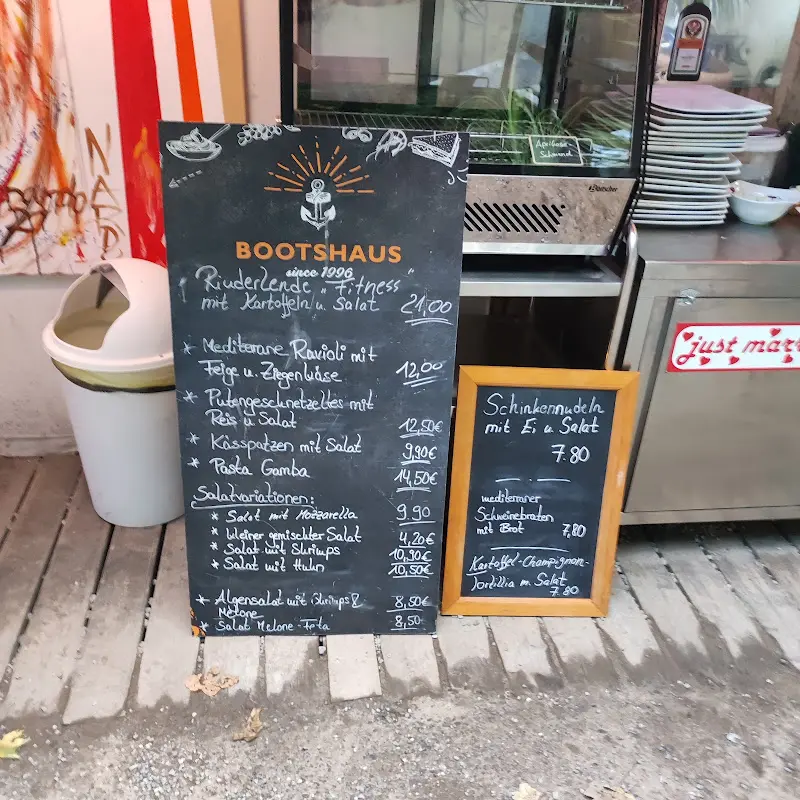 BOOTSHAUS
since 1996
Rinderlende "Fitness"
mit Kartoffeln u. Salat 21,00
* Mediterane Ravioli mit
Feige u. Ziegenkäse 12,00
* Putengeschnetzeltes mit
Reis u Salat 12,50€
* Kässpatzen mit Salat 9,90€
* Pasta Gamba 14,50€
Salatvariationen:
* Salat mit Mozzarella 9.90
* kleiner gemischter Salat 4,20€
* Salat mit Shrimps 10,90€
* Salat mit Huhn 10,50€
* Algensalat mit Shrimps & 8,50€
Melone
* Salat Melone-Feta 8,50
Schinkennudeln
mit Ei u Salat
7.80
mediteraner
Schweinebraten
mit Brot 7,80
Kartoffel-Champignon-
Tortillia m. Salat
7.80
just marr